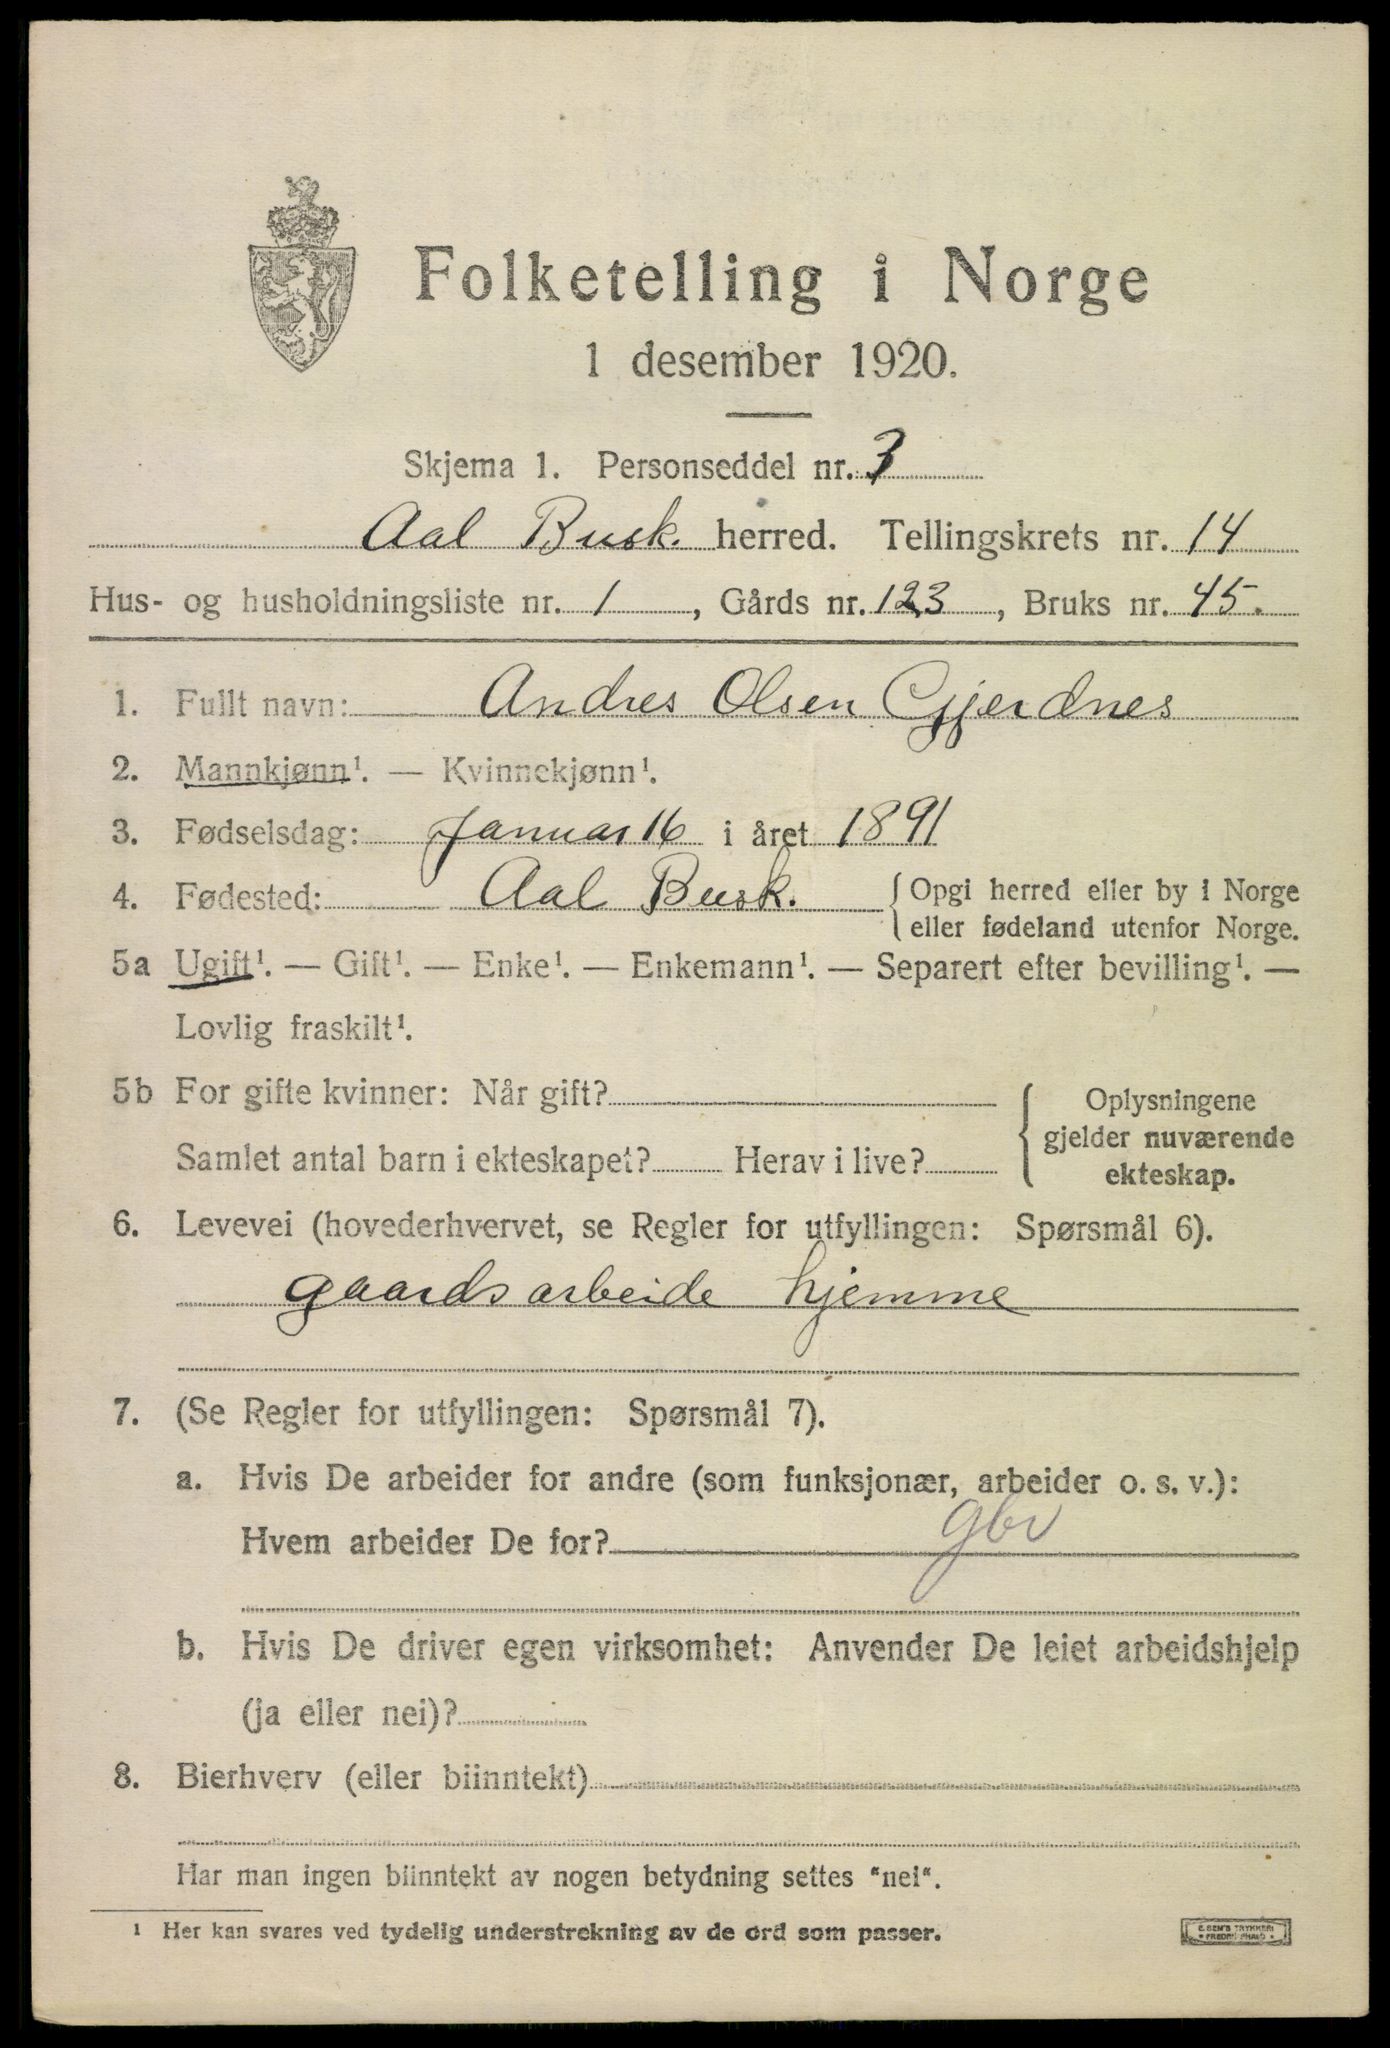 Folketelling i Norge
1 desember 1920.
Skjema 1. Personseddel nr. 3
Aal Busk. herred. Tellingskrets nr. 14
Hus- og husholdningsliste nr. 1, Gårds nr. 123, Bruks nr. 45.
1. Fullt navn: Andres Olsen Gjerdnes
2. Mannkjønn¹. — Kvinnekjønn¹.
3. Fødselsdag: Januar 16 i året 1891
4. Fødested: Aal Busk. { Opgi herred eller by i Norge
eller fødeland utenfor Norge.
5a Ugift¹. — Gift¹. — Enke¹. — Enkemann¹. — Separert efter bevilling¹. —
Lovlig fraskilt¹.
5b For gifte kvinner: Når gift?
Samlet antal barn i ekteskapet? Herav i live?
{ Oplysningene
gjelder nuværende
ekteskap.
6. Levevei (hovederhvervet, se Regler for utfyllingen: Spørsmål 6).
gaardsarbeide hjemme
7. (Se Regler for utfyllingen: Spørsmål 7).
a. Hvis De arbeider for andre (som funksjonær, arbeider o. s. v.):
Hvem arbeider De for? gbr
b. Hvis De driver egen virksomhet: Anvender De leiet arbeidshjelp
(ja eller nei)?
8. Bierhverv (eller biinntekt)
Har man ingen biinntekt av nogen betydning settes "nei".
¹ Her kan svares ved tydelig understrekning av de ord som passer.